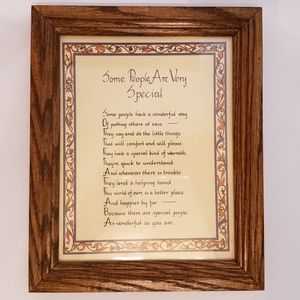 Some People Are Very
Special
Some people have a wonderful way
Of putting others at ease —
They say and do the little things
That will comfort and will please
They have a special kind of warmth,
They're quick to understand
And whenever there is trouble
They lend a helping hand.
This world of ours is a better place
And happier by far —
Because there are special people
As wonderful as you are.